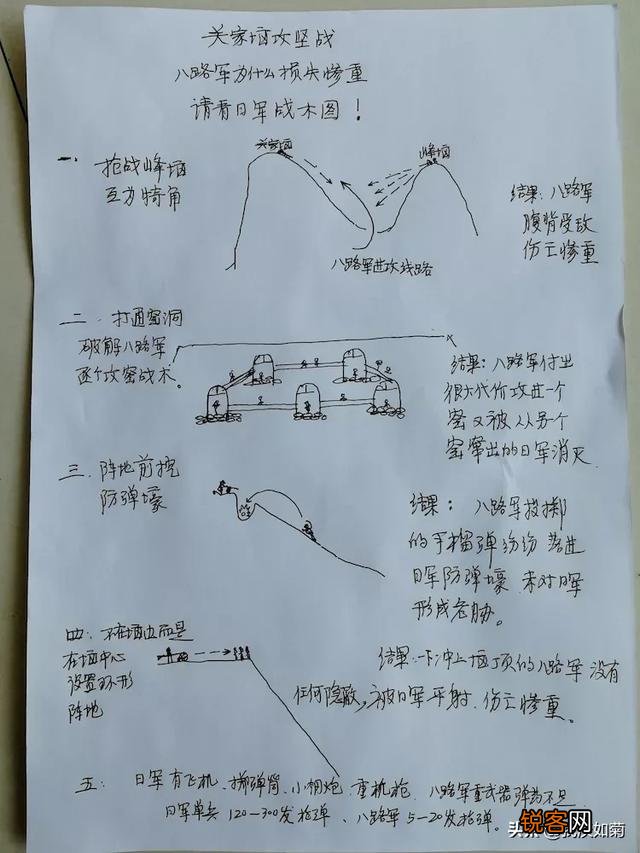 关家垴攻坚战
八路军为什么损失惨重
请看日军战术图！
一、抢战峰垴
互为犄角
关家垴
峰垴
八路军进攻线路
结果：八路军
腹背受敌
伤亡惨重
二、打通窑洞
破解八路军
逐个攻窑战术。
结果：八路军付出
很大代价攻进一个
窑又被从另个
窑窜出的日军消灭
三、阵地前挖
防弹壕
结果：八路军投掷
的手榴弹纷纷落进
日军防弹壕，未对日军
形成危胁。
四、不在垴边而是
在垴中心
设置环形
阵地
结果：冲上垴顶的八路军没有
任何隐蔽，被日军平射、伤亡惨重。
五：日军有飞机、掷弹筒、小钢炮、重机枪、八路军重武器弹药不足
日军单兵120—300发枪弹、八路军5—20发枪弹。
头条
如菊
锐客网